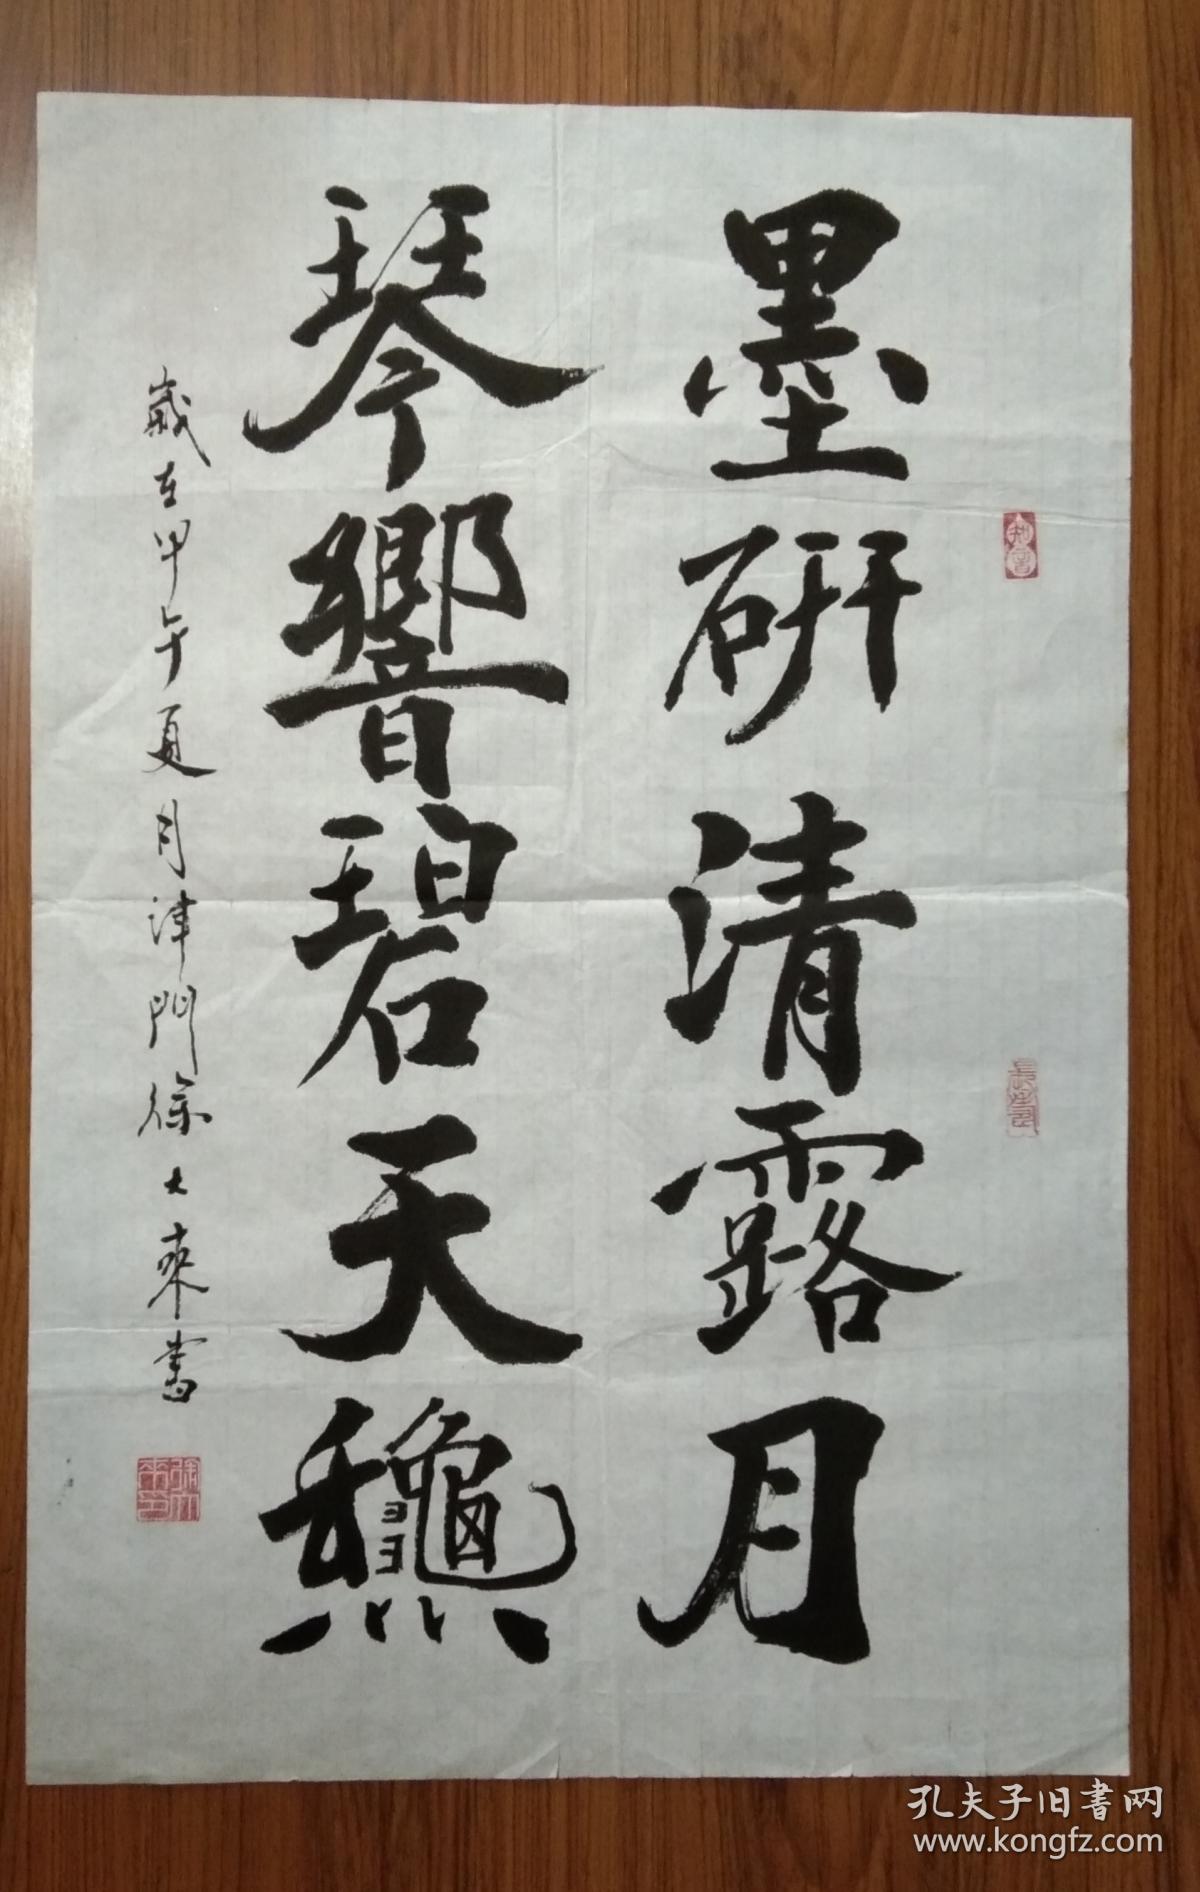 墨研清露月
琴響碧天龝
歲在甲午夏月津門徐大來書
知音
長壽
孔夫子旧書网
www.kongfz.com